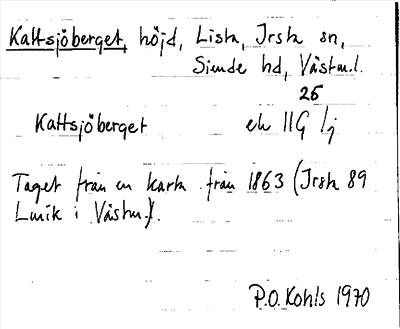 Kattsjöberget, höjd, Lista, Irsta sn,
Siende hd, Västm.l.
25
Kattsjöberget ek 11G lj
Taget från en karta från 1863 (Irsta 89
Lmk i Västm.).
P.O. Kohls 1970